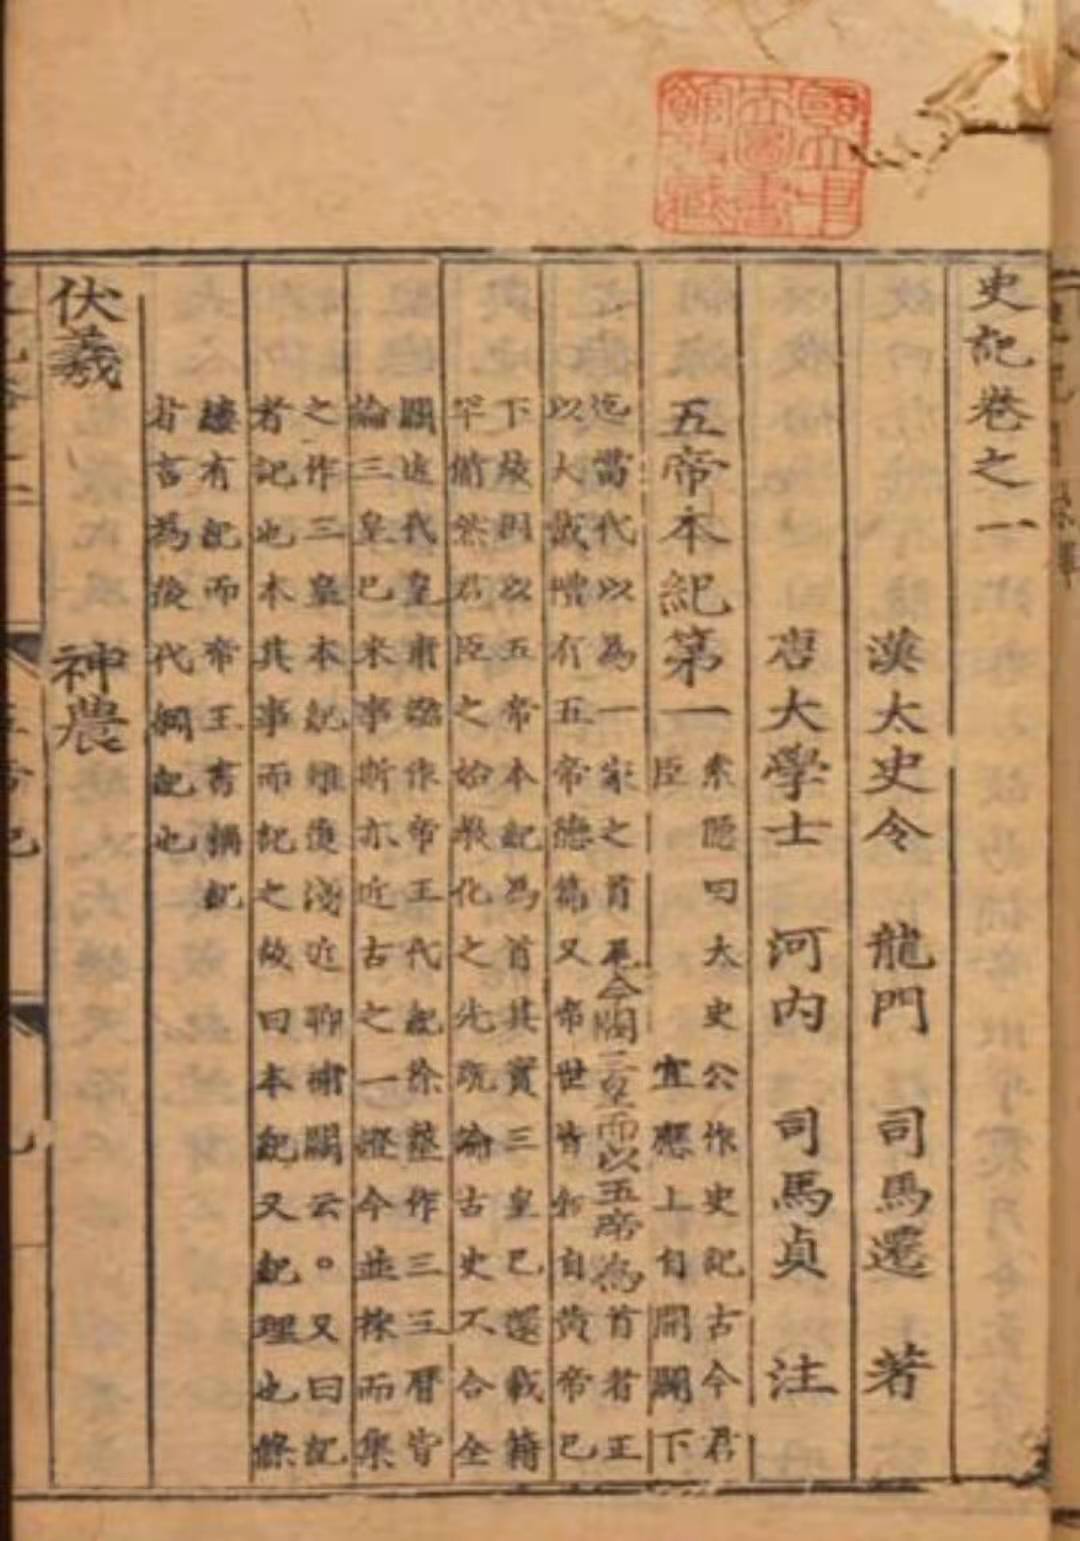 國立中
央圖書
館收藏
史記卷之一
漢太史令 龍門 司馬遷 著
唐大學士 河內 司馬貞 注
五帝本紀第一
索隱曰太史公作史記古今君
臣 宜應上自開闢下
迄當代以為一家之首尾今闕三皇而以五帝為首者正
以大戴禮有五帝德篇又帝世皆敘自黃帝已
下故則以五帝本紀為首其實三皇已還載籍
罕備然君臣之始教化之先既論古史不合全
闕近代皇甫謐作帝王代紀徐整作三三曆皆
論三皇已來事斯亦近古之一證今並採而集
之作三皇本紀雖復淺近聊補闕云。又曰紀
者記也本其事而記之故曰本紀又紀理也絲
縷有紀而帝王書稱紀
者言為後代綱紀也
伏羲 神農